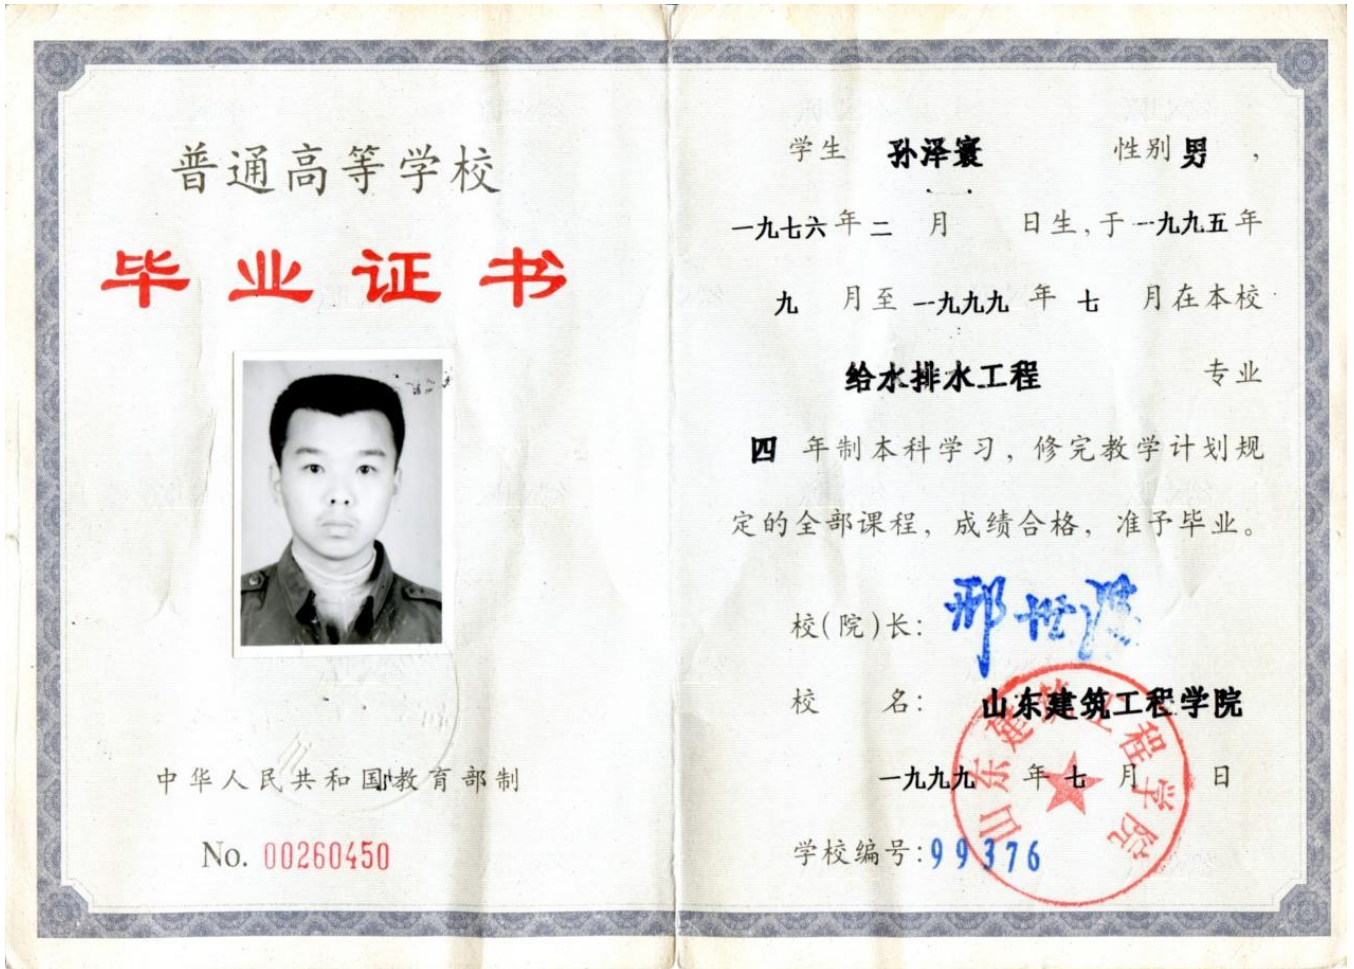 普通高等学校
毕业证书
中华人民共和国教育部制
No. 00260450
学生 孙泽寰 性别 男，
一九七六年二月 日生，于一九九五年
九 月至 一九九九 年 七 月在本校
给水排水工程 专业
四 年制本科学习，修完教学计划规
定的全部课程，成绩合格，准予毕业。
校(院)长：
校 名： 山东建筑工程学院
一九九九 年 七 月 日
学校编号：99376
山东建筑工程学院